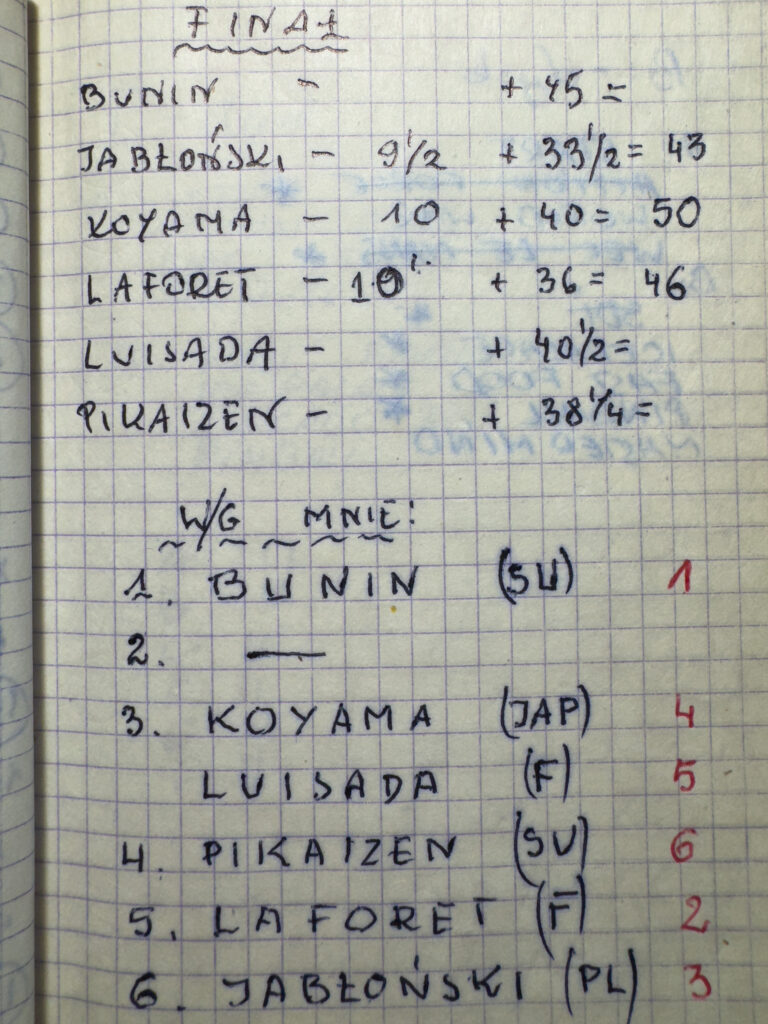 FINAŁ
BUNIN - + 45 =
JABŁOŃSKI - 9 1/2 + 33 1/2 = 43
KOYAMA - 10 + 40 = 50
LAFORET - 10 + 36 = 46
LUISADA - + 40 1/2 =
PIKAIZEN - + 38 1/4 =
W/G MNIE:
1. BUNIN (SU) 1
2. —
3. KOYAMA (JAP) 4
LUISADA (F) 5
4. PIKAIZEN (SU) 6
5. LAFORET (F) 2
6. JABŁOŃSKI (PL) 3